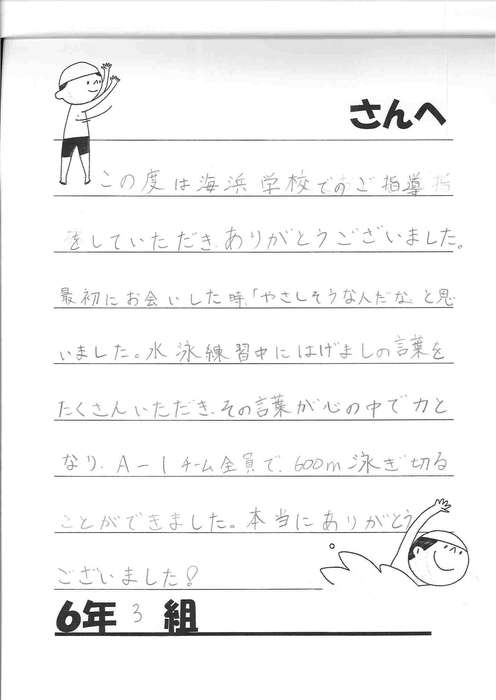 さんへ
この度は海浜学校でのご指導
をしていただき、ありがとうございました。
最初にお会いした時、「やさしそうな人だな」と思
いました。水泳練習中にはげましの言葉を
たくさんいただき、その言葉が心の中で力と
なり、A－1チーム全員で、600m泳ぎ切る
ことができました。本当にありがとう
ございました!
6年3組